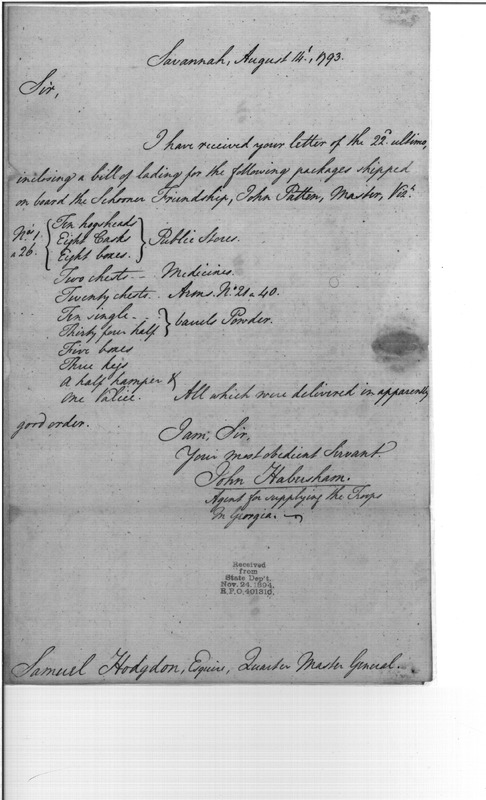 Savannah, August 14th, 1793.
Sir,
I have received your letter of the 22d ultimo,
inclosing a bill of lading for the following packages shipped
on board the Schooner Friendship, John Patten, Master, Vizt.
Nos. 1 a 26. { Ten hogsheads
Eight Casks } Public Stores.
Eight boxes.
Two chests — Medicines.
Twenty chests. Arms. No. 21 a 40.
Ten single — } barrels Powder.
Thirty four half
Five boxes
Three kegs
A half hamper &
One valice. All which were delivered in apparently
good order.
I am, Sir,
Your most obedient Servant.
John Habersham.
Agent for supplying the Troops
in Georgia.
Received
from
State Dep't.
Nov. 24. 1894.
R.P.O. 401310.
Samuel Hodgdon, Esquire, Quarter Master General.